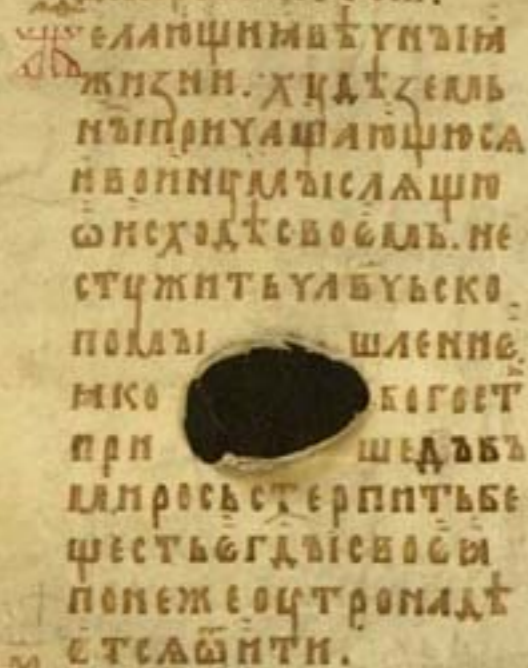 Желающимъ вѣчныꙗ
жизни. хꙋдѣ земль
ныпричащающюсѧ
ивоинꙋмыслѧщю
ѿисходѣсвоѥмь. не
стꙋжитьчл҃вчьско
помы шлениѥ
ꙗко когост
при шедъвъ
миросьстерпитьбе
щестьѥгдысвоѥꙗ
понежеоутромадѣ
ѥтсѧѿити.